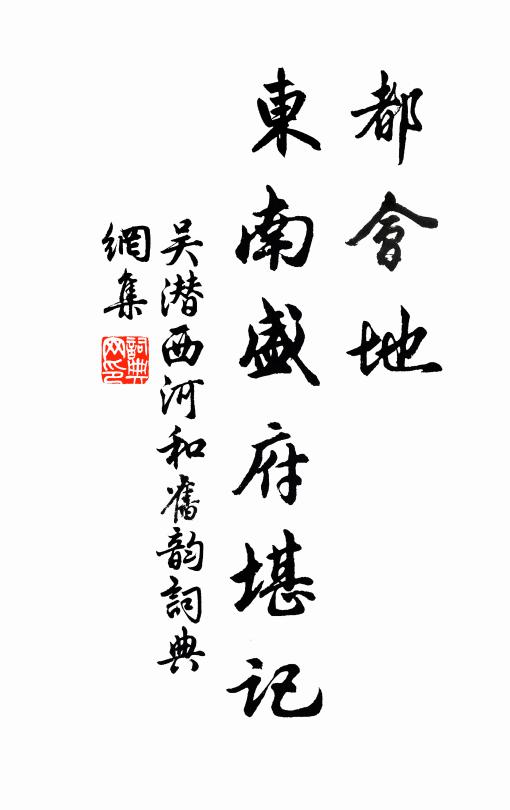 都會地
東南盛府堪記
吴潜西河和舊韵詞典
網集
詞典網印